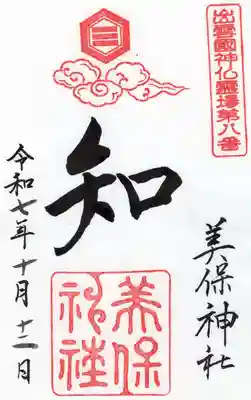 出雲國神仏霊場第八番
美保神社
知
美保神社
令和七年十月十二日